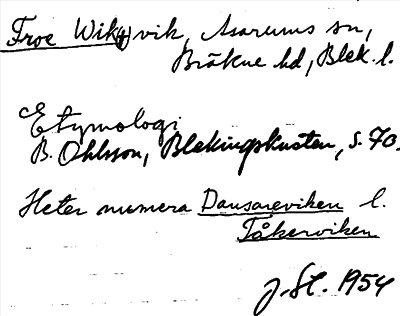 Froe Wik(4) vik, Asarums sn,
Bräkne hd, Blek. l.
Etymologi
B. Ohlsson, Blekingskusten, s. 70.
Heter numera Dansareviken l.
Tåkerviken
J. St. 1954